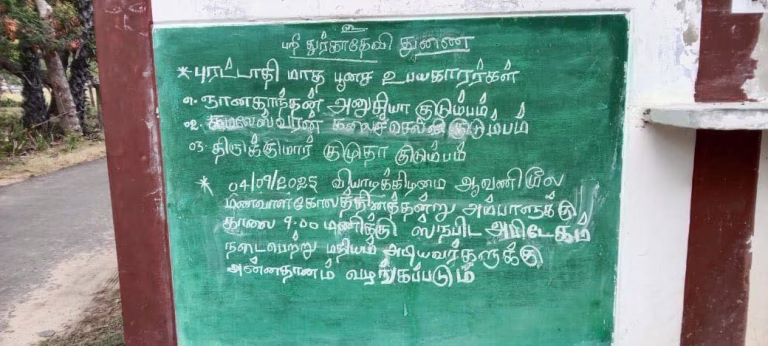 ஸ்ரீ துர்காதேவி துணை
* புரட்டாதி மாத பூசை உபயகாரர்கள்
01. ஞானகாந்தன் அனுசியா குடும்பம்
02. கமலேஸ்வரன் கலைச்செல்வி குடும்பம்
03. திருக்குமார் குமுதா குடும்பம்
* 04/09/2025 வியாழக்கிழமை ஆவணியில
மணவாளகோலத்தினத்தன்று அம்பாளுக்கு
காலை 9.00 மணிக்கு ஸ்நபிட அபிடேகம்
நடைபெற்று மதியம் அடியவர்களுக்கு
அன்னதானம் வழங்கப்படும்